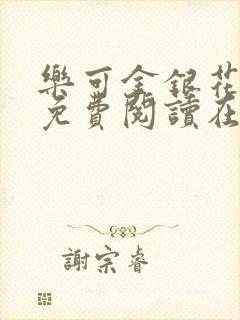 樂可金銀花
免費閱讀在
謝宗睿